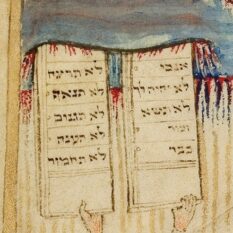 אנכי
לא יהיה לך
לא תשא
זכור
כבד
לא תרצח
לא תנאף
לא תגנוב
לא תענה
לא תחמוד